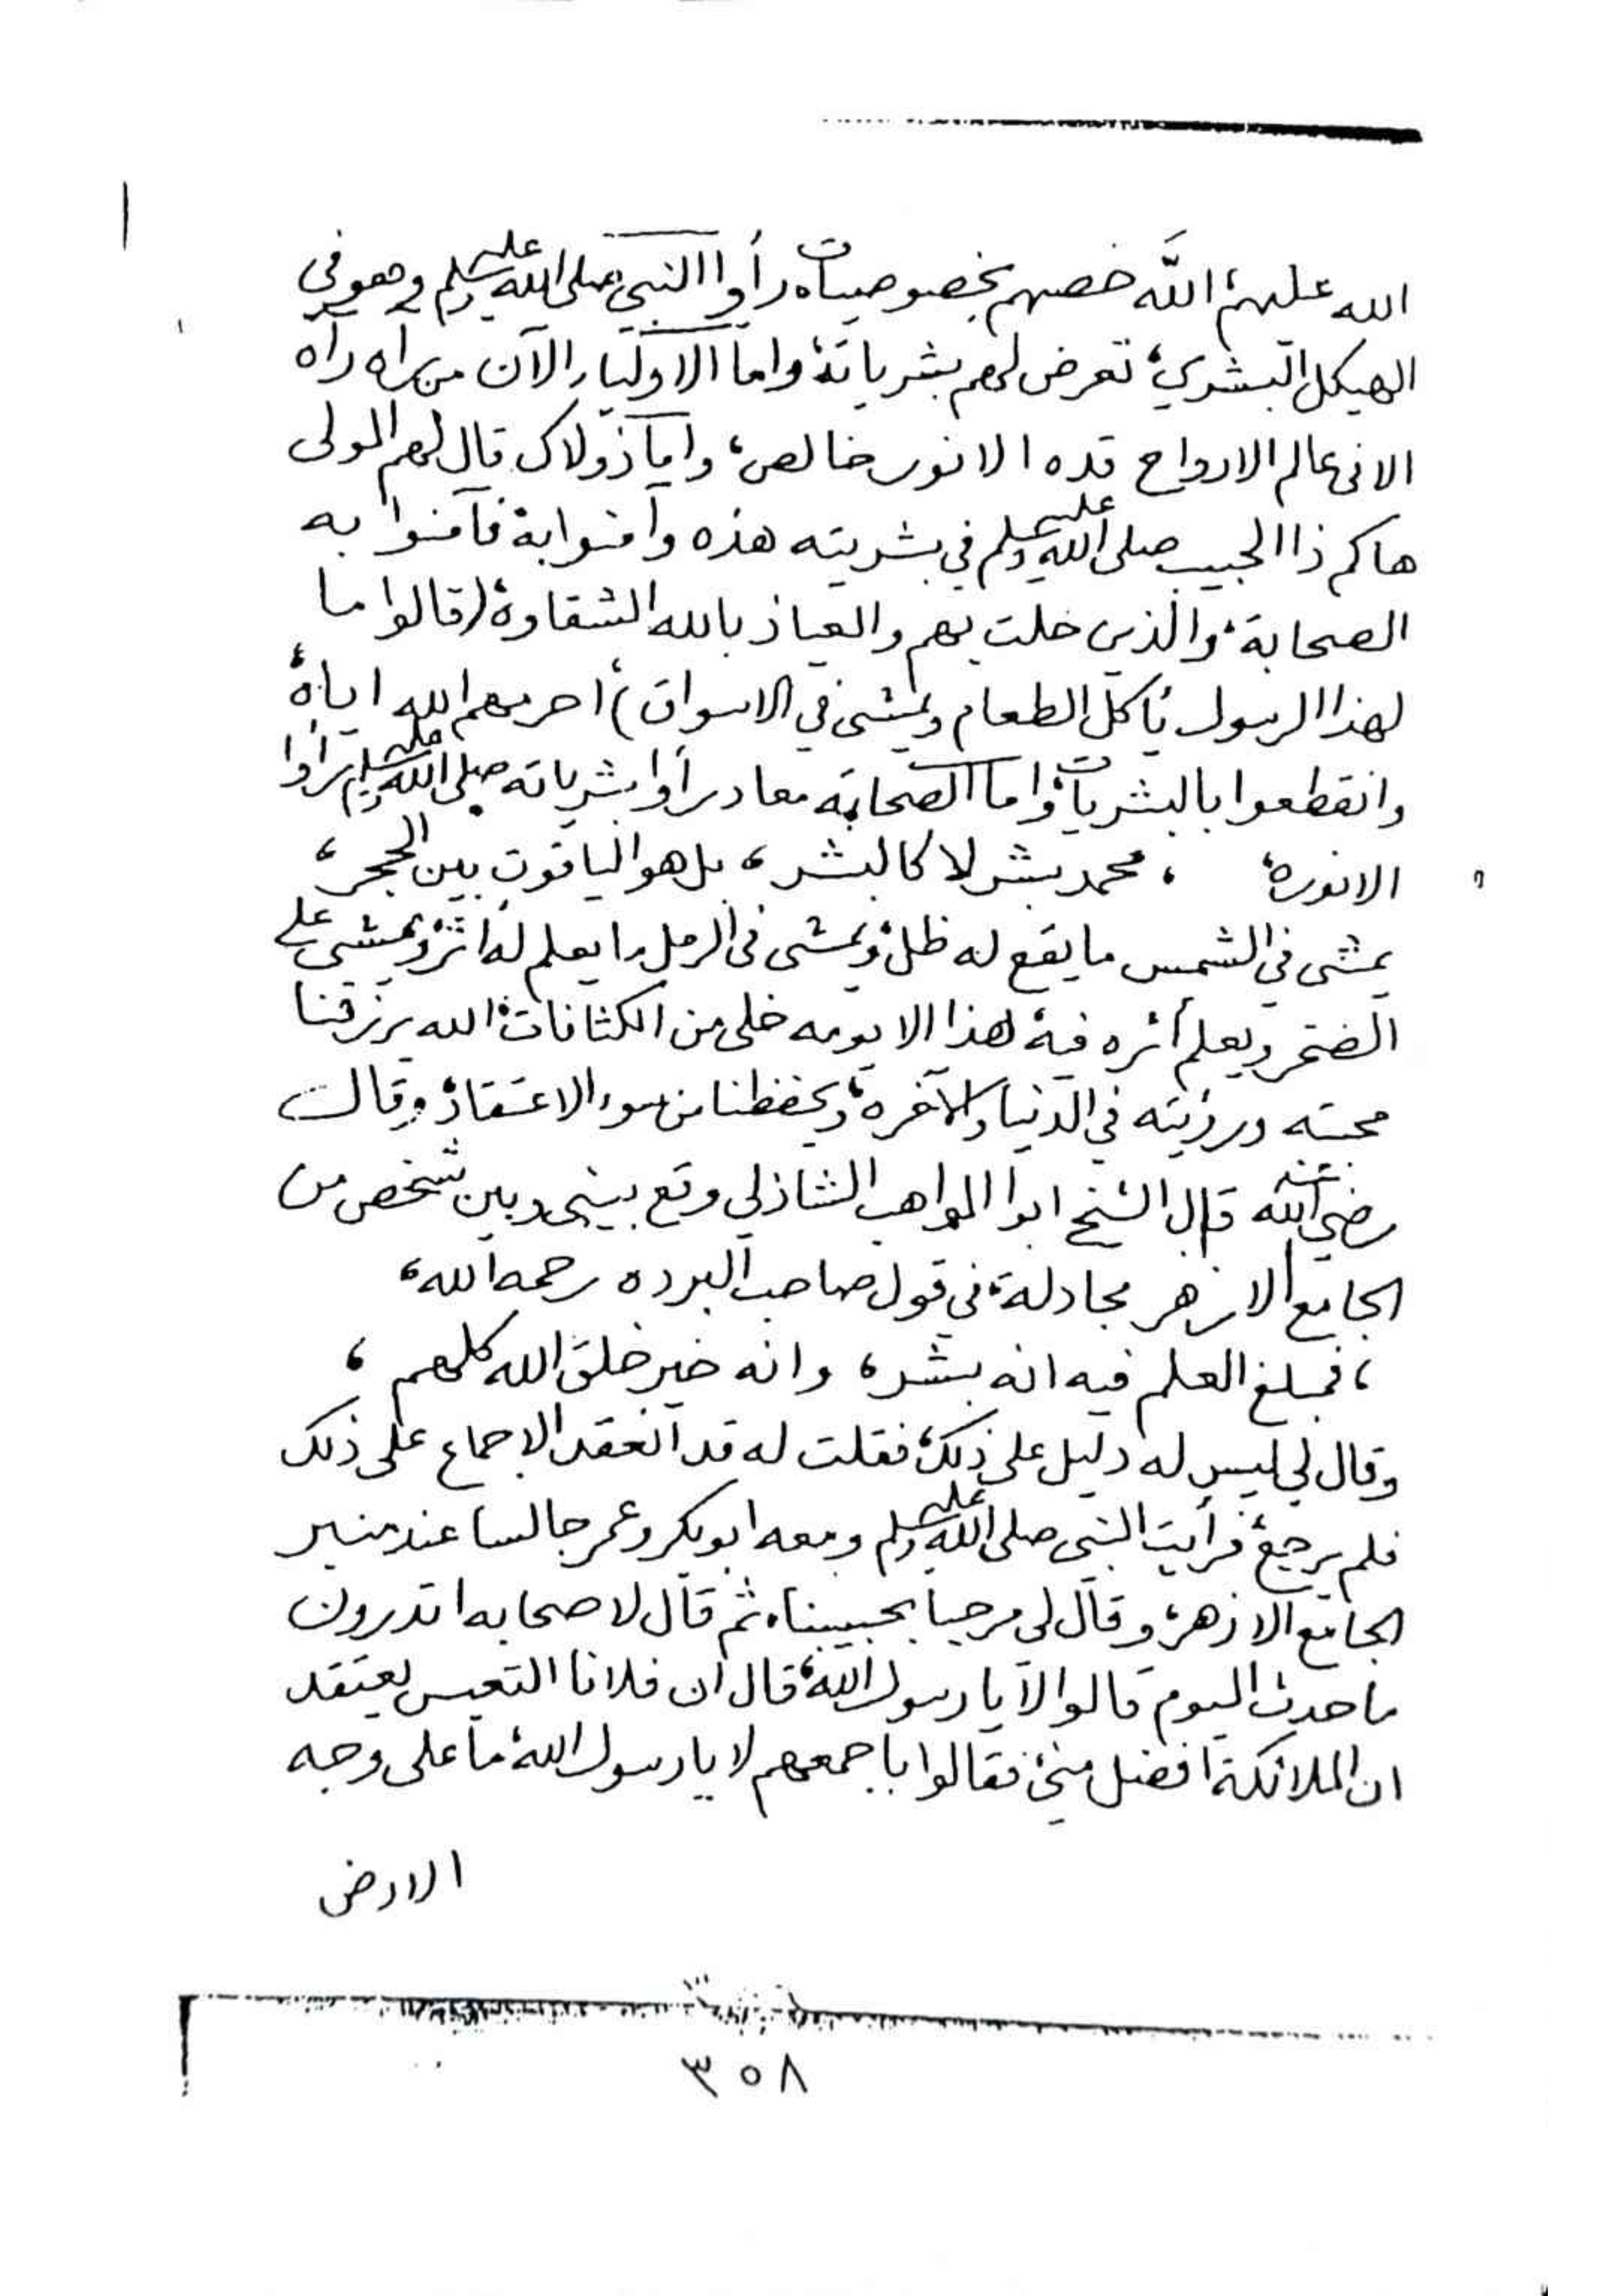 الله عليهم، الله خصهم بخصوصيات، رأوا النبي صلى الله عليه وسلم وهو في
الهيكل البشري، تعرض لهم بشرياته، واما الاولياء الآن من راه رآه
الا في عالم الارواح قده الا نور خالص، واما ذولاك قال لهم المولى
هاكم ذا الحبيب صلى الله عليه وسلم في بشريته هذه وآمنوا به، فآمنوا به
الصحابة، والذين خلت بهم والعياذ بالله الشقاوة (قالوا ما
لهذا الرسول يأكل الطعام ويمشي في الاسواق) احرمهم الله اياه،
وانقطعوا بالبشريات، واما الصحابة معاد رأوا بشرياته صلى الله عليه وسلم رأوا
الا نوره، ، محمد بشر لا كالبشر، بل هو الياقوت بين الحجر،
يمشي في الشمس ما يقع له ظل، ويمشي في الرمل ما يعلم له اثر، ويمشي على
الصخر ويعلم أثره فيه، لهذا الا يومه خلي من الكثافات، الله يرزقنا
محبته ورؤيته في الدنيا والآخره، ويحفظنا من سوء الاعتقاد، وقال
رضي الله عنه قال الشيخ ابوا المواهب الشاذلي وقع بيني وبين شخص من
الجامع الازهر مجادلة، في قول صاحب البرده رحمه الله،
، فمبلغ العلم فيه انه بشر، وانه خير خلق الله كلهم ،
وقال لي ليس له دليل على ذلك، فقلت له قد انعقد الاجماع على ذلك
فلم يرجع، فرأيت النبي صلى الله عليه وسلم ومعه ابوبكر وعمر جالسا عند منبر
الجامع الازهر، وقال لي مرحبا بحبيبنا، ثم قال لاصحابه اتدرون
ما حدث اليوم قالوا لا يا رسول الله، قال ان فلانا التعيس يعتقد
ان الملائكة افضل مني، فقالوا باجمعهم لا يا رسول الله، ما على وجه
الارض
٣٥٨